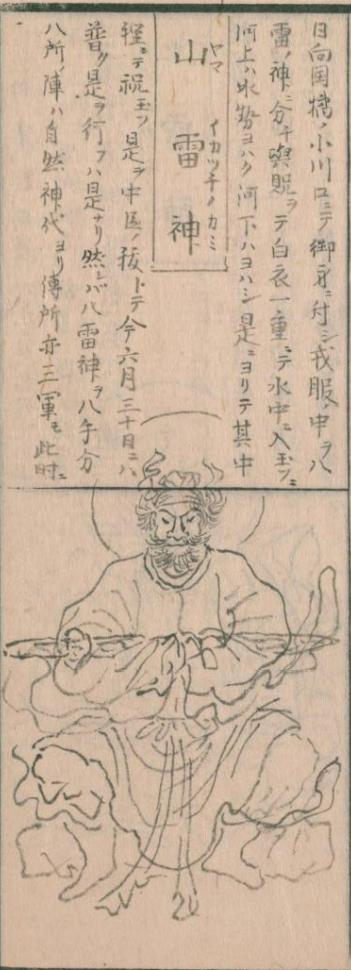 日向国橘ノ小川口ニテ御身ニ付シ戎服ノ中ヲ八
雷ノ神ニ分チ與賜ヲテ白衣一重ニテ水中ニ入玉フニ
河上ハ水勢ヨハク河下ハヨハシ是ニヨリテ其中
山雷神
ヤマイカツチノカミ
程ニテ祝玉フ是ヲ中臣ノ祓トテ今六月三十日ニハ
普ク是ヲ行フハ是ナリ然レバ八雷神ヲ八手分
八所ノ陣ハ自然神代ヨリ傳所亦三軍モ此時ニ